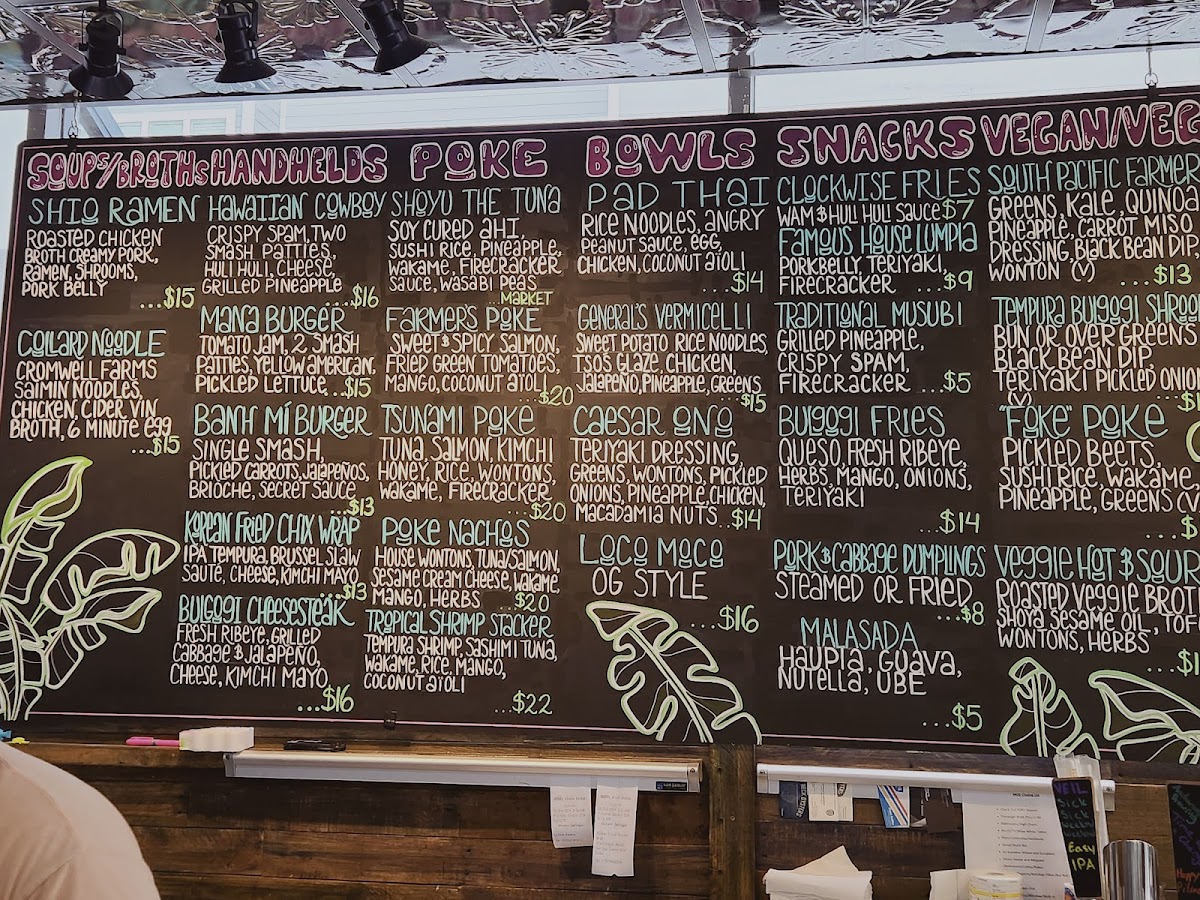 SOUPS/BROTHS
SHIO RAMEN
ROASTED CHICKEN
BROTH CREAMY PORK,
RAMEN, SHROOMS,
PORK BELLY
...$15
COLLARD NOODLE
CROMWELL FARMS
SAIMIN NOODLES,
CHICKEN, CIDER, VIN
BROTH, 6 MINUTE EGG
...$15
HANDHELDS
HAWAIIAN COWBOY
CRISPY SPAM, TWO
SMASH PATTIES,
HULI HULI, CHEESE,
GRILLED PINEAPPLE
...$16
MANA BURGER
TOMATO JAM, 2 SMASH
PATTIES, YELLOW AMERICAN,
PICKLED LETTUCE...$15
BANH MÍ BURGER
SINGLE SMASH,
PICKLED CARROTS, JALAPEÑOS,
BRIOCHE, SECRET SAUCE
...$13
KOREAN FRIED CHIX WRAP
IPA TEMPURA, BRUSSEL SLAW
SAUTE, CHEESE, KIMCHI MAYO
...$13
BULGOGI CHEESESTEAK
FRESH RIBEYE, GRILLED
CABBAGE & JALAPEÑO,
CHEESE, KIMCHI MAYO
...$16
POKE
SHOYU THE TUNA
SOY CURED AHI,
SUSHI RICE, PINEAPPLE,
WAKAME, FIRECRACKER
SAUCE, WASABI PEAS
...MARKET
FARMER'S POKE
SWEET & SPICY SALMON,
FRIED GREEN TOMATOES,
MANGO, COCONUT AIOLI
...$20
TSUNAMI POKE
TUNA, SALMON, KIMCHI
HONEY, RICE, WONTONS,
WAKAME, FIRECRACKER
...$20
POKE NACHOS
HOUSE WONTONS, TUNA/SALMON,
SESAME CREAM CHEESE, WAKAME
MANGO, HERBS ...$20
TROPICAL SHRIMP STACKER
TEMPURA SHRIMP, SASHIMI TUNA,
WAKAME, RICE, MANGO,
COCONUT AIOLI
...$22
BOWLS
PAD THAI
RICE NOODLES, ANGRY
PEANUT SAUCE, EGG,
CHICKEN, COCONUT AIOLI
...$14
GENERAL'S VERMICELLI
SWEET POTATO RICE NOODLES,
TSO'S GLAZE, CHICKEN,
JALAPEÑO, PINEAPPLE, GREENS
...$15
CAESAR ONO
TERIYAKI DRESSING,
GREENS, WONTONS, PICKLED
ONIONS, PINEAPPLE, CHICKEN,
MACADAMIA NUTS...$14
LOCO MOCO
OG STYLE
...$16
SNACKS
CLOCKWISE FRIES
WAM & HULI HULI SAUCE $7
FAMOUS HOUSE LUMPIA
PORKBELLY, TERIYAKI,
FIRECRACKER ...$9
TRADITIONAL MUSUBI
GRILLED PINEAPPLE,
CRISPY SPAM,
FIRECRACKER ...$5
BULGOGI FRIES
QUESO, FRESH RIBEYE,
HERBS, MANGO, ONIONS,
TERIYAKI
...$14
PORK & CABBAGE DUMPLINGS
STEAMED OR FRIED
...$8
MALASADA
HAUPIA, GUAVA,
NUTELLA, UBE
...$5
VEGAN/VEG
SOUTH PACIFIC FARMER
GREENS, KALE, QUINOA
PINEAPPLE, CARROT MISO
DRESSING, BLACK BEAN DIP,
WONTON (V)
...$13
TEMPURA BULGOGI SHROO
BUN OR OVER GREENS
BLACK BEAN DIP,
TERIYAKI PICKLED ONIO
(V)
"FOKE" POKE
PICKLED BEETS,
SUSHI RICE, WAKAME
PINEAPPLE, GREENS (V
...$
VEGGIE HOT & SOUR
ROASTED VEGGIE BROT
SHOYA SESAME OIL, TOF
WONTONS, HERBS
...$1
VEIL
Easy
IPA